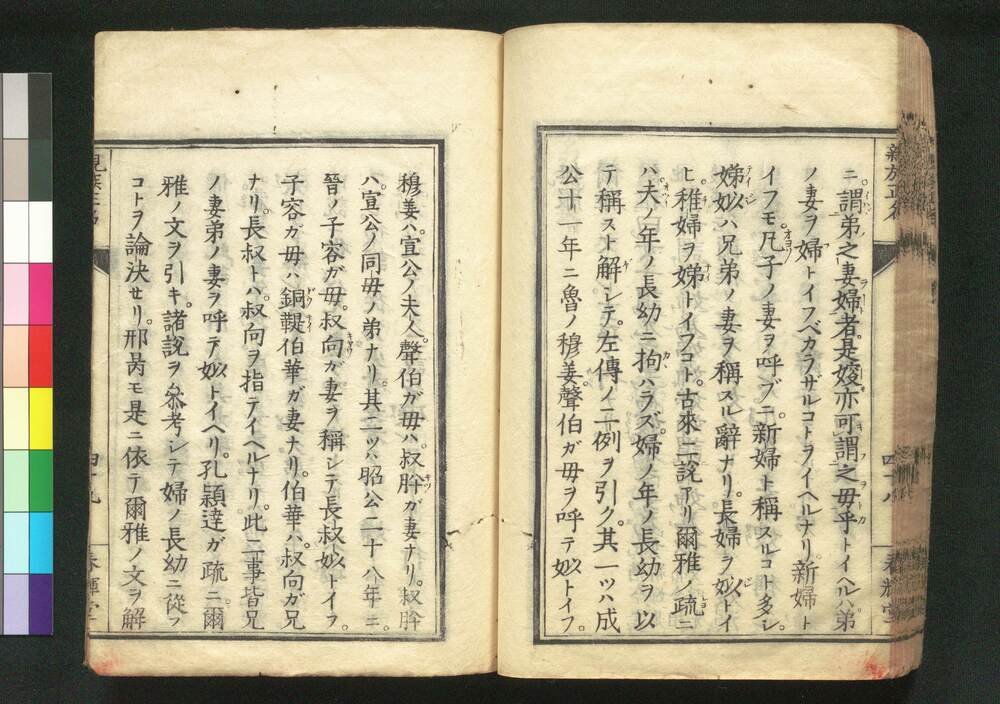 親族正名
四十八
春輝堂
ニ謂弟之妻婦者。是嫂亦可謂之母乎トイヘルハ弟
ノ妻ヲ婦トイフベカラザルコトヲイヘルナリ。新婦ト
イフモ。凡子ノ妻ヲ呼ブニ。新婦ト稱スルコト多シ。
娣姒ハ兄弟ノ妻ヲ稱スル辭ナリ。長婦ヲ姒トイ
ヒ。稚婦ヲ娣トイフコト。古來二說アリ爾雅ノ疏ニ
ハ。夫ノ年ノ長幼ニ拘ハラズ。婦ノ年ノ長幼ヲ以
テ稱スト解シテ。左傳ノ二例ヲ引ク。其一ツハ成
公十一年ニ魯ノ穆姜。聲伯ガ母ヲ呼テ姒トイフ。
穆姜ハ。宣公ノ夫人。聲伯ガ母ハ。叔肸ガ妻ナリ。叔肸
ハ。宣公ノ同母ノ弟ナリ。其二ツハ。昭公二十八年ニ。
晉ノ子容ガ母。叔向ガ妻ヲ稱シテ長叔姒トイフ。
子容ガ母ハ。銅鞮伯華ガ妻ナリ。伯華ハ。叔向ガ兄
ナリ。長叔トハ。叔向ヲ指テイヘルナリ。此二事皆兄
ノ妻弟ノ妻ヲ呼テ姒トイヘリ。孔穎達ガ疏ニ。爾
雅ノ文ヲ引キ。諸說ヲ參考シテ婦ノ長幼ニ從フ
コトヲ論決セリ。邢昺モ是ニ依テ爾雅ノ文ヲ解
親族正名
四十九
春輝堂